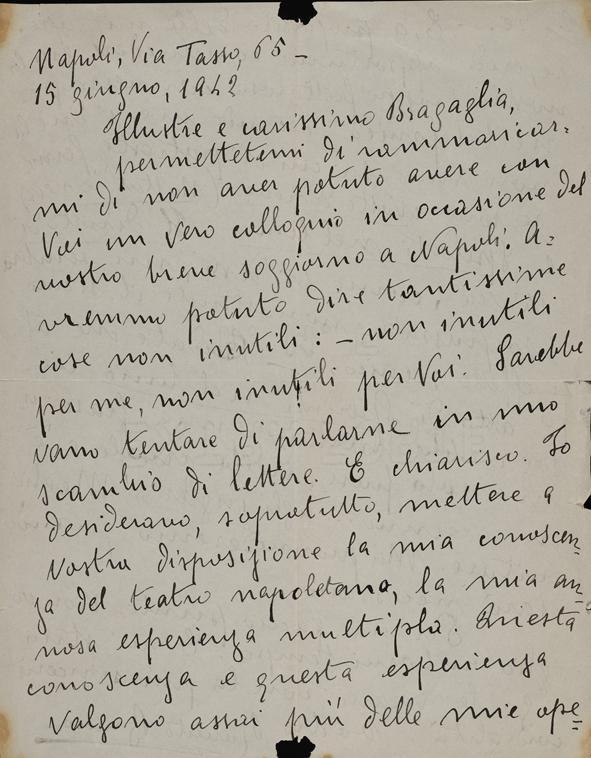 Napoli, Via Tasso, 65 –
15 giugno, 1942
Illustre e carissimo Bragaglia,
permettetemi di rammaricar=
mi di non aver potuto avere con
Voi un vero colloquio in occasione del
vostro breve soggiorno a Napoli. A=
vremmo potuto dire tantissime
cose non inutili : – non inutili
per me, non inutili per Voi. Sarebbe
vano tentare di parlarne in uno
scambio di lettere. E chiarisco. Io
desideravo, sopratutto, mettere a
Vostra disposizione la mia conoscen=
za del teatro napoletano, la mia an=
nosa esperienza multipla. Questa
conoscenza e questa esperienza
valgono assai più delle mie ope=